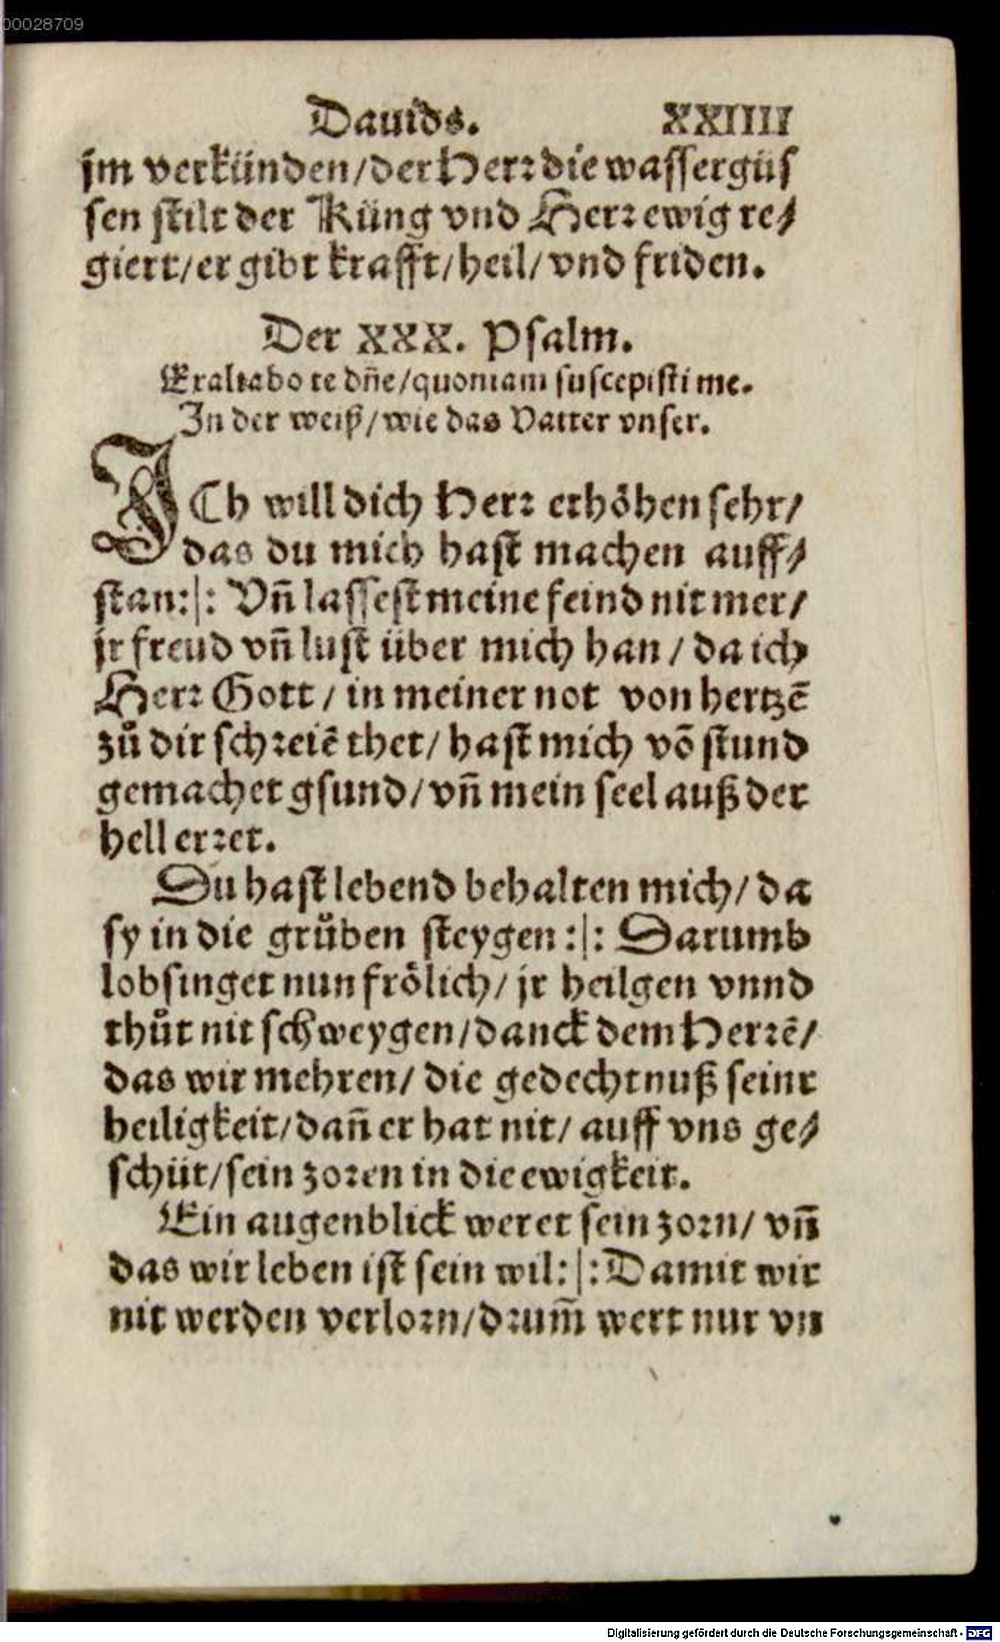 00028709
Dauids. XXIIII
jm verkünden/der Herr die wassergüs
sen stilt der Küng vnd Herr ewig re/
giert/er gibt krafft/heil/vnd friden.
Der XXX. Psalm.
Exaltabo te dñe/quoniam suscepisti me.
In der weiß/wie das Vatter vnser.
ICh will dich Herr erhöhen sehr/
das du mich hast machen auff/
stan:|: Vñ lassest meine feind nit mer/
jr freud vñ lust über mich han/da ich
Herr Gott/in meiner not von hertzē
zů dir schreiē thet/hast mich vō stund
gemachet gsund/vñ mein seel auß der
hell erret.
Du hast lebend behalten mich/da
sy in die grůben steygen:|: Darumb
lobsinget nun frölich/jr heilgen vnnd
thůt nit schweygen/danck dem Herrē/
das wir mehren/die gedechtnuß seinr
heiligkeit/dañ er hat nit/auff vns ge/
schüt/sein zoren in die ewigkeit.
Ein augenblick weret sein zorn/vñ
das wir leben ist sein wil:|: Damit wir
nit werden verlorn/drum̄ wert nur vn
Digitalisierung gefördert durch die Deutsche Forschungsgemeinschaft - DFG